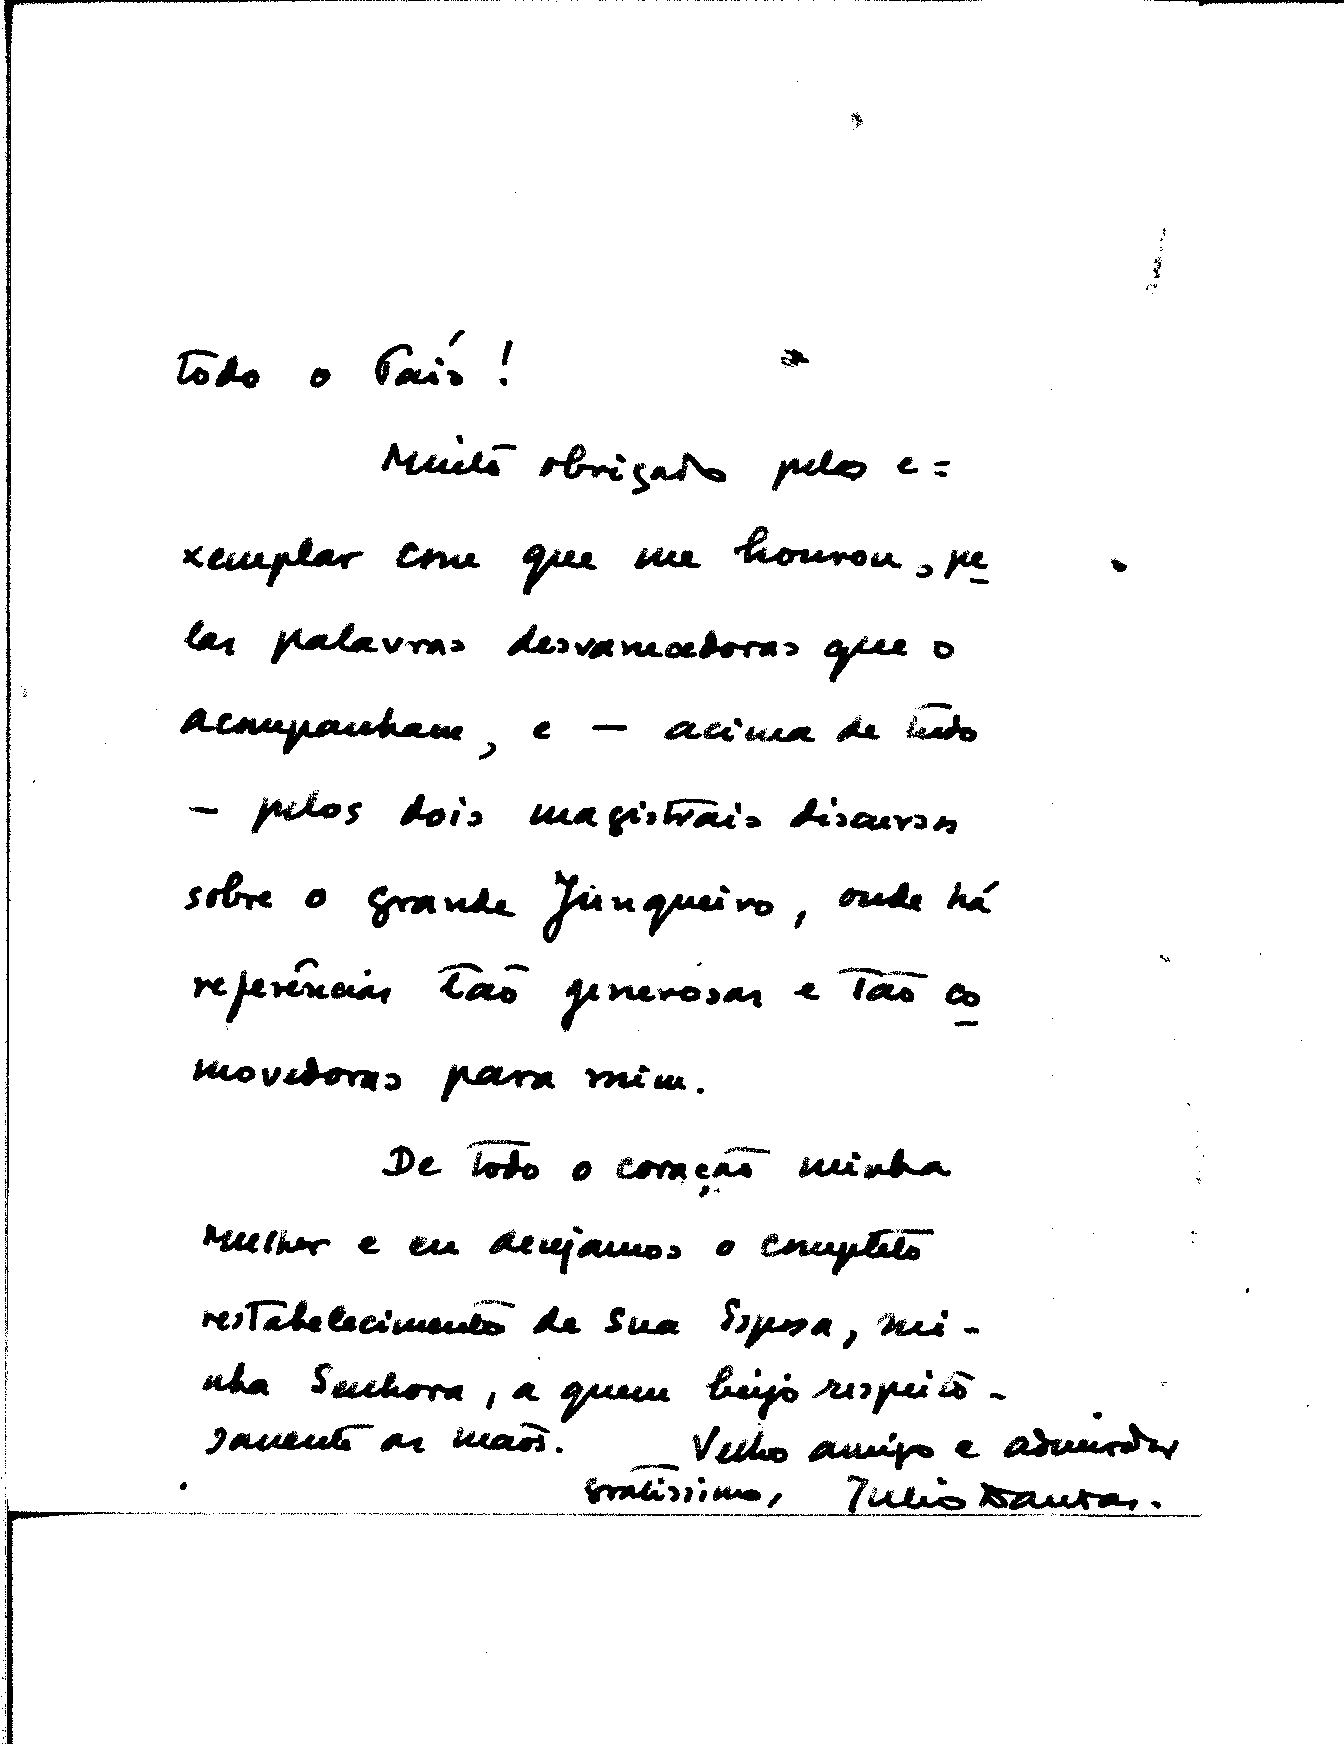 todo o País!
Muito obrigado pelo e=
xemplar com que me honrou, pe
las palavras desvanecedoras que o
acompanham, e — acima de tudo
— pelos dois magistrais discursos
sobre o grande Junqueiro, onde há
referências tão generosas e tão co
movedoras para mim.
De todo o coração minha
mulher e eu desejamos o completo
restabelecimento de Sua Esposa, mi-
nha Senhora, a quem beijo respeito-
samente as mãos. Velho amigo e admirador
gratíssimo, Julio Dantas.